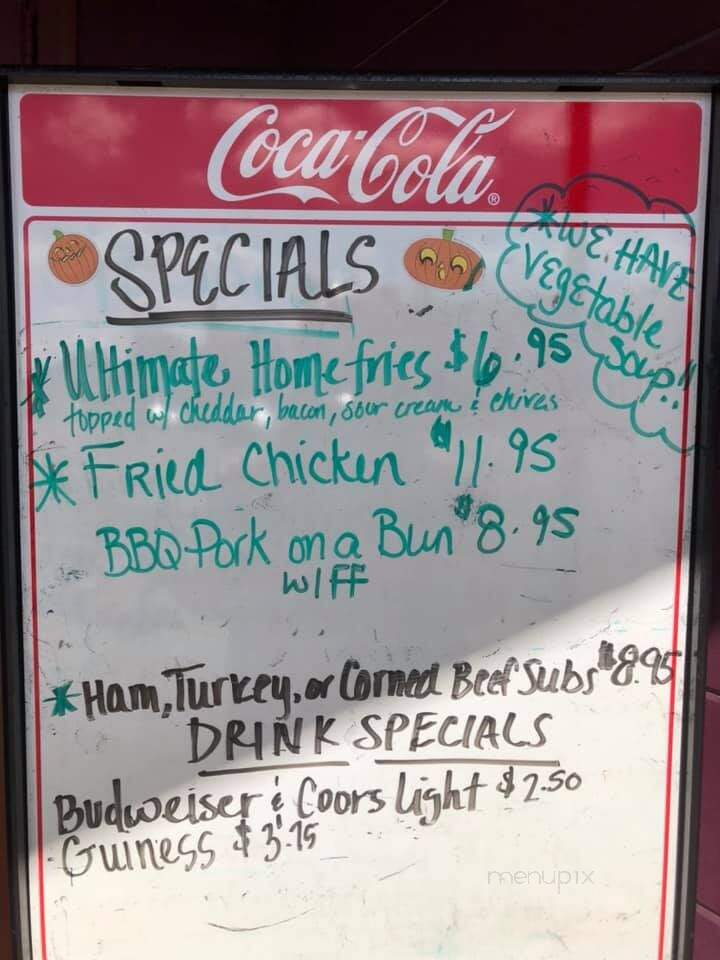 Coca-Cola®
SPECIALS
*WE HAVE
VEgEtable
Soup!!
* Ultimate Home fries $6.95
topped w/ cheddar, bacon, sour cream & chives
* FRiEd Chicken $11.95
BBQ Pork on a Bun $8.95
w/FF
* Ham, Turkey, or Corned Beef Subs $8.95
DRINK SPECIALS
Budweiser & Coors Light $2.50
Guiness $3.75
menupix